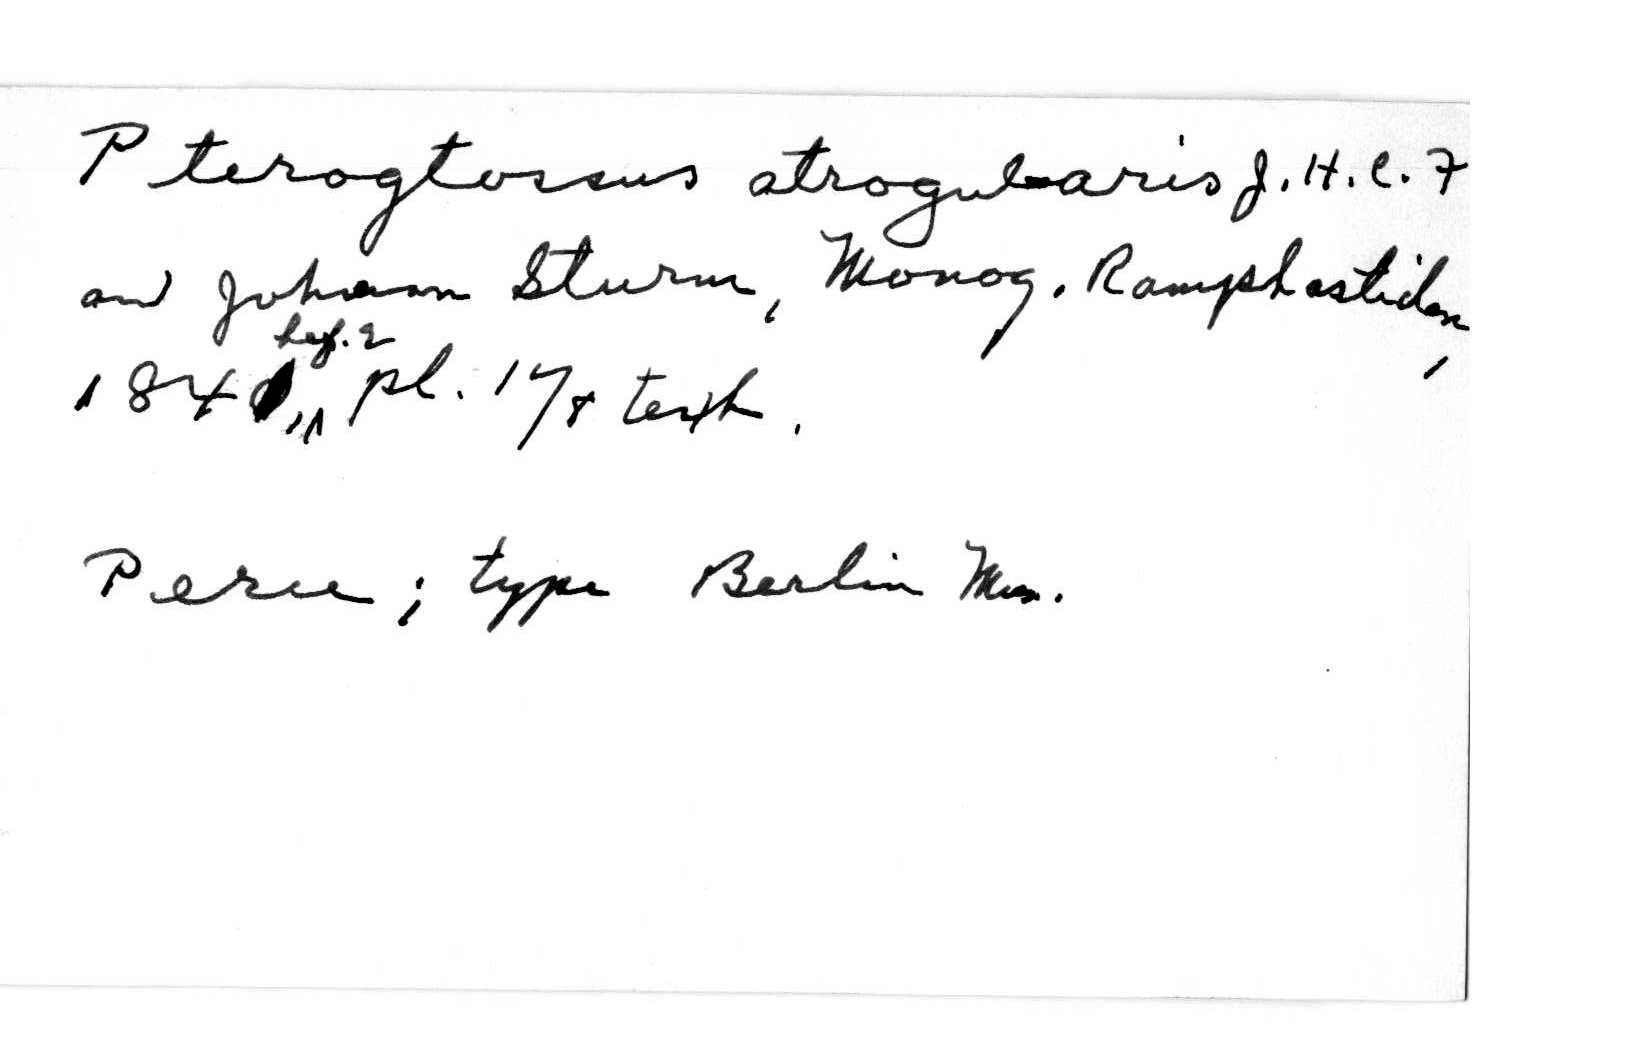 Pteroglossus atrogularis J. H. C. F
and Johann Sturm, Monog. Ramphastiden,
hef. 2
184, pl. 17/8 text.
Peru; type Berlin Mus.